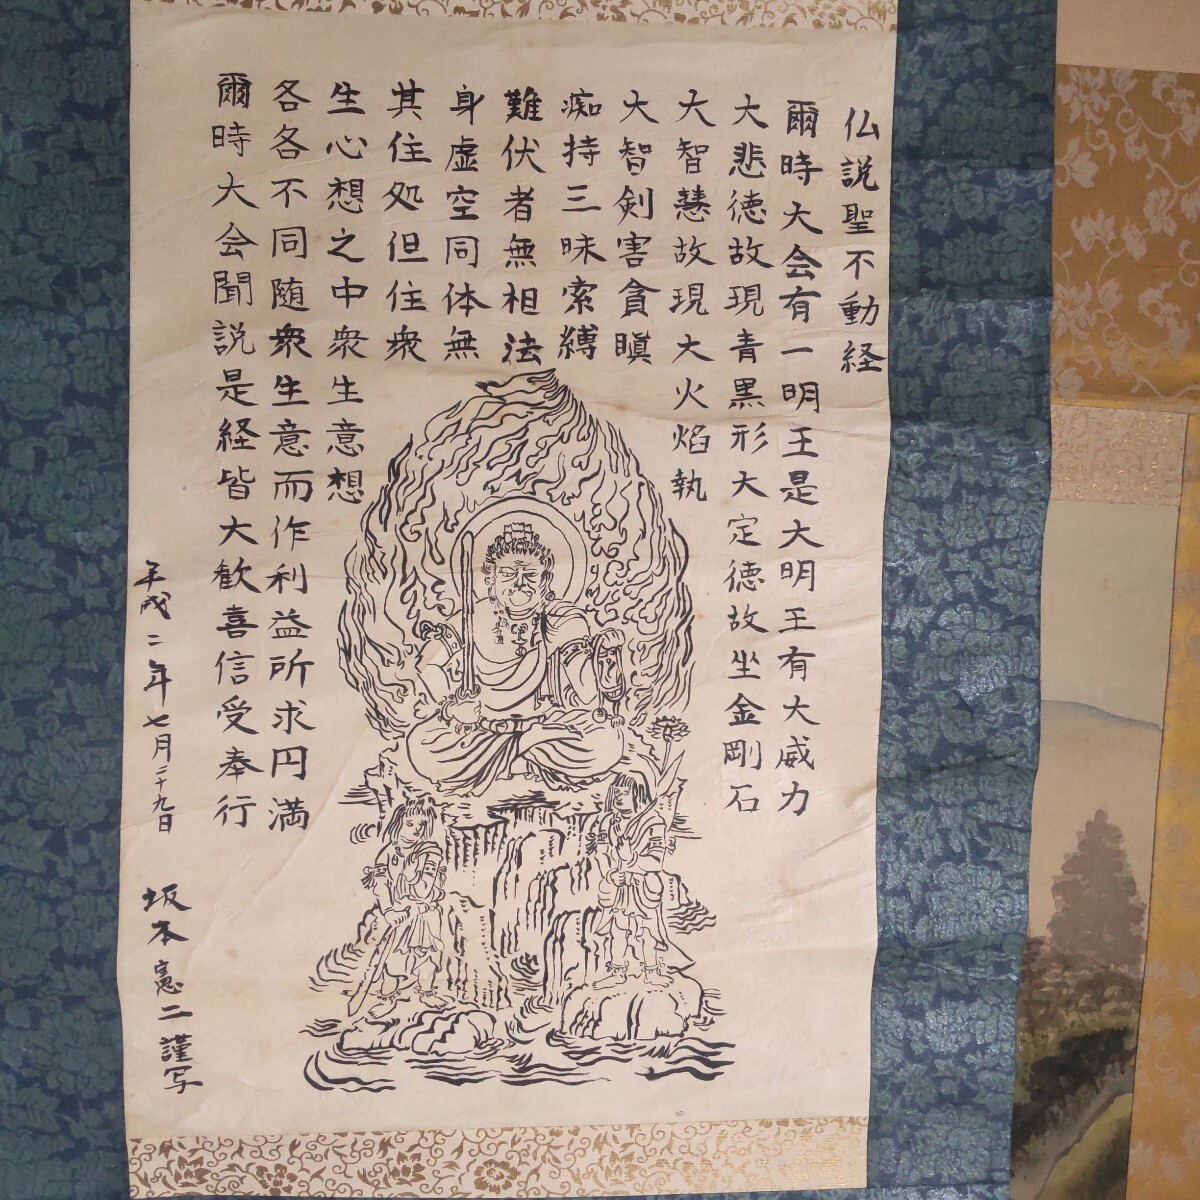 仏説聖不動経
爾時大会有一明王是大明王有大威力
大悲徳故現青黒形大定徳故坐金剛石
大智慧故現大火焔執
大智剣害貪瞋
痴持三昧索縛
難伏者無相法
身虚空同体無
其住処但住衆
生心想之中衆生意想
各各不同随衆生意而作利益所求円満
爾時大会聞説是経皆大歓喜信受奉行
平成二年七月二十九日
坂本憲二謹写